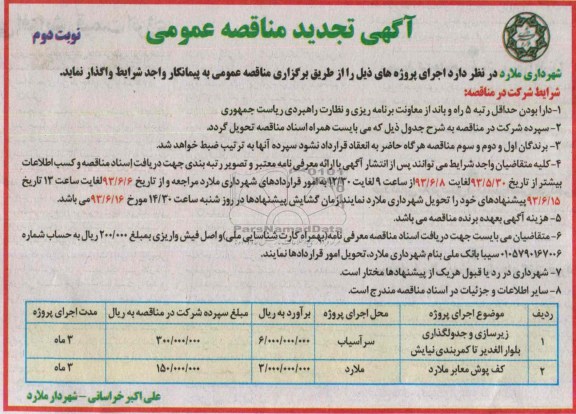 آگهی تجدید مناقصه عمومی
نوبت دوم
شهرداری ملارد در نظر دارد اجرای پروژه های ذیل را از طریق برگزاری مناقصه عمومی به پیمانکار واجد شرایط واگذار نماید.
شرایط شرکت در مناقصه:
۱-دارا بودن حداقل رتبه ۵ راه و باند از معاونت برنامه ریزی و نظارت راهبردی ریاست جمهوری
۲- سپرده شرکت در مناقصه به شرح جدول ذیل که می بایست همراه اسناد مناقصه تحویل گردد.
۳- برندگان اول و دوم و سوم مناقصه هرگاه حاضر به انعقاد قرارداد نشود سپرده آنها به ترتیب ضبط خواهد شد.
۴-کلیه متقاضیان واجد شرایط می توانند پس از انتشار آگهی با ارائه معرفی نامه معتبر و تصویر رتبه بندی جهت دریافت اسناد مناقصه و کسب اطلاعات
بیشتر از تاریخ ۹۳/۵/۳۰ لغایت ۹۳/۶/۸ از ساعت ۹ لغایت ۱۳/۳۰ به امور قراردادهای شهرداری ملارد مراجعه و از تاریخ ۹۳/۶/۶ لغایت ساعت ۱۳ تاریخ
۹۳/۶/۱۵ پیشنهادهای خود را تحویل شهرداری ملارد نمایند زمان گشایش پیشنهادها در روز شنبه ساعت ۱۴/۳۰ مورخ ۹۳/۶/۱۶ می باشد.
۵- هزینه آگهی بعهده برنده مناقصه می باشد.
۶- متقاضیان می بایست جهت دریافت اسناد مناقصه معرفی نامه (بهمراه کارت شناسایی ملی) و اصل فیش واریزی بمبلغ ۲۰۰/۰۰۰ ریال به حساب شماره
۰۱۰۵۷۹۰۱۶۷۰۰۶ سیبا بانک ملی بنام شهرداری ملارد، تحویل امور قراردادها نمایند.
۷- شهرداری در رد یا قبول هریک از پیشنهادها مختار است.
۸- سایر اطلاعات و جزئیات در اسناد مناقصه مندرج است.
ردیف موضوع اجرای پروژه محل اجرای پروژه برآورد به ریال مبلغ سپرده شرکت در مناقصه به ریال مدت اجرای پروژه
۱ زیرسازی و جدولگذاری بلوار الغدیر تا کمربندی نیایش سرآسیاب ۶/۰۰۰/۰۰۰/۰۰۰ ۳۰۰/۰۰۰/۰۰۰ ۳ ماه
۲ کف پوش معابر ملارد ملارد ۳/۰۰۰/۰۰۰/۰۰۰ ۱۵۰/۰۰۰/۰۰۰ ۳ ماه
علی اکبر خراسانی - شهردار ملارد
ParsNamadData